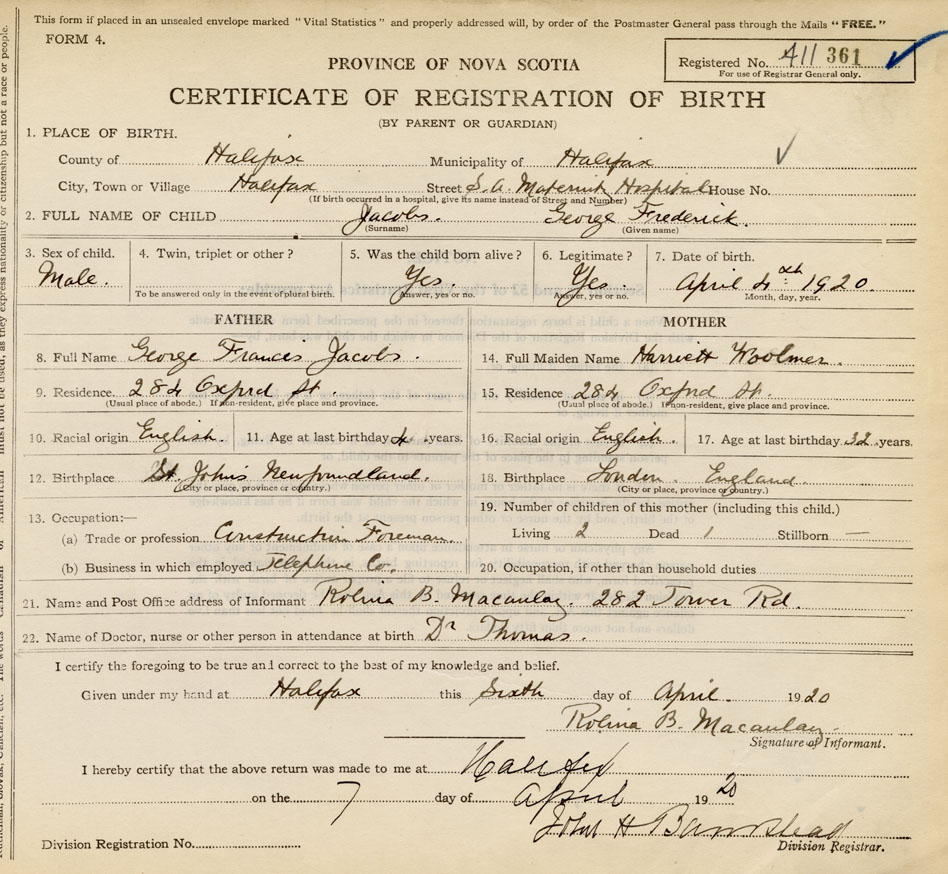 This form if placed in an unsealed envelope marked "Vital Statistics" and properly addressed will, by order of the Postmaster General pass through the Mails "FREE."
FORM 4.
Registered No. 411 361
For use of Registrar General only.
PROVINCE OF NOVA SCOTIA
CERTIFICATE OF REGISTRATION OF BIRTH
(BY PARENT OR GUARDIAN)
1. PLACE OF BIRTH.
County of Halifax Municipality of Halifax
City, Town or Village Halifax Street S. A. Maternity Hospital House No.
(If birth occurred in a hospital, give its name instead of Street and Number)
2. FULL NAME OF CHILD Jacobs. George Frederick.
(Surname) (Given name)
3. Sex of child. 4. Twin, triplet or other? 5. Was the child born alive? 6. Legitimate? 7. Date of birth.
Male. Yes. Yes. April 4th 1920.
To be answered only in the event of plural birth. Answer, yes or no. Answer, yes or no. Month, day, year.
FATHER MOTHER
8. Full Name George Francis Jacobs. 14. Full Maiden Name Harriett Woolmer.
9. Residence 284 Oxford St. 15. Residence 284 Oxford St.
(Usual place of abode.) If non-resident, give place and province. (Usual place of abode.) If non-resident, give place and province.
10. Racial origin English. 11. Age at last birthday years. 16. Racial origin English. 17. Age at last birthday 32 years.
12. Birthplace St. John's Newfoundland. 18. Birthplace London England.
(City or place, province or country.) (City or place, province or country.)
13. Occupation:— 19. Number of children of this mother (including this child.)
(a) Trade or profession Construction Foreman. Living 2 Dead 1 Stillborn —
(b) Business in which employed Telephone Co. 20. Occupation, if other than household duties
21. Name and Post Office address of Informant Rolina B. Macaulay. 282 Tower Rd.
22. Name of Doctor, nurse or other person in attendance at birth Dr Thomas.
I certify the foregoing to be true and correct to the best of my knowledge and belief.
Given under my hand at Halifax this Sixth day of April. 1920
Rolina B. Macaulay.
Signature of Informant.
I hereby certify that the above return was made to me at Halifax
on the 7 day of April 1920
John H Barnstead
Division Registration No. Division Registrar.